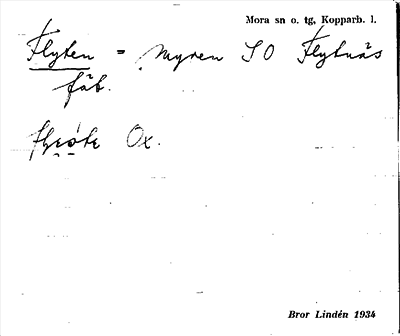 Mora sn o. tg, Kopparb. l.
Flyten = myren SO Flytnäs
fäb.
Ox.
Bror Lindén 1934